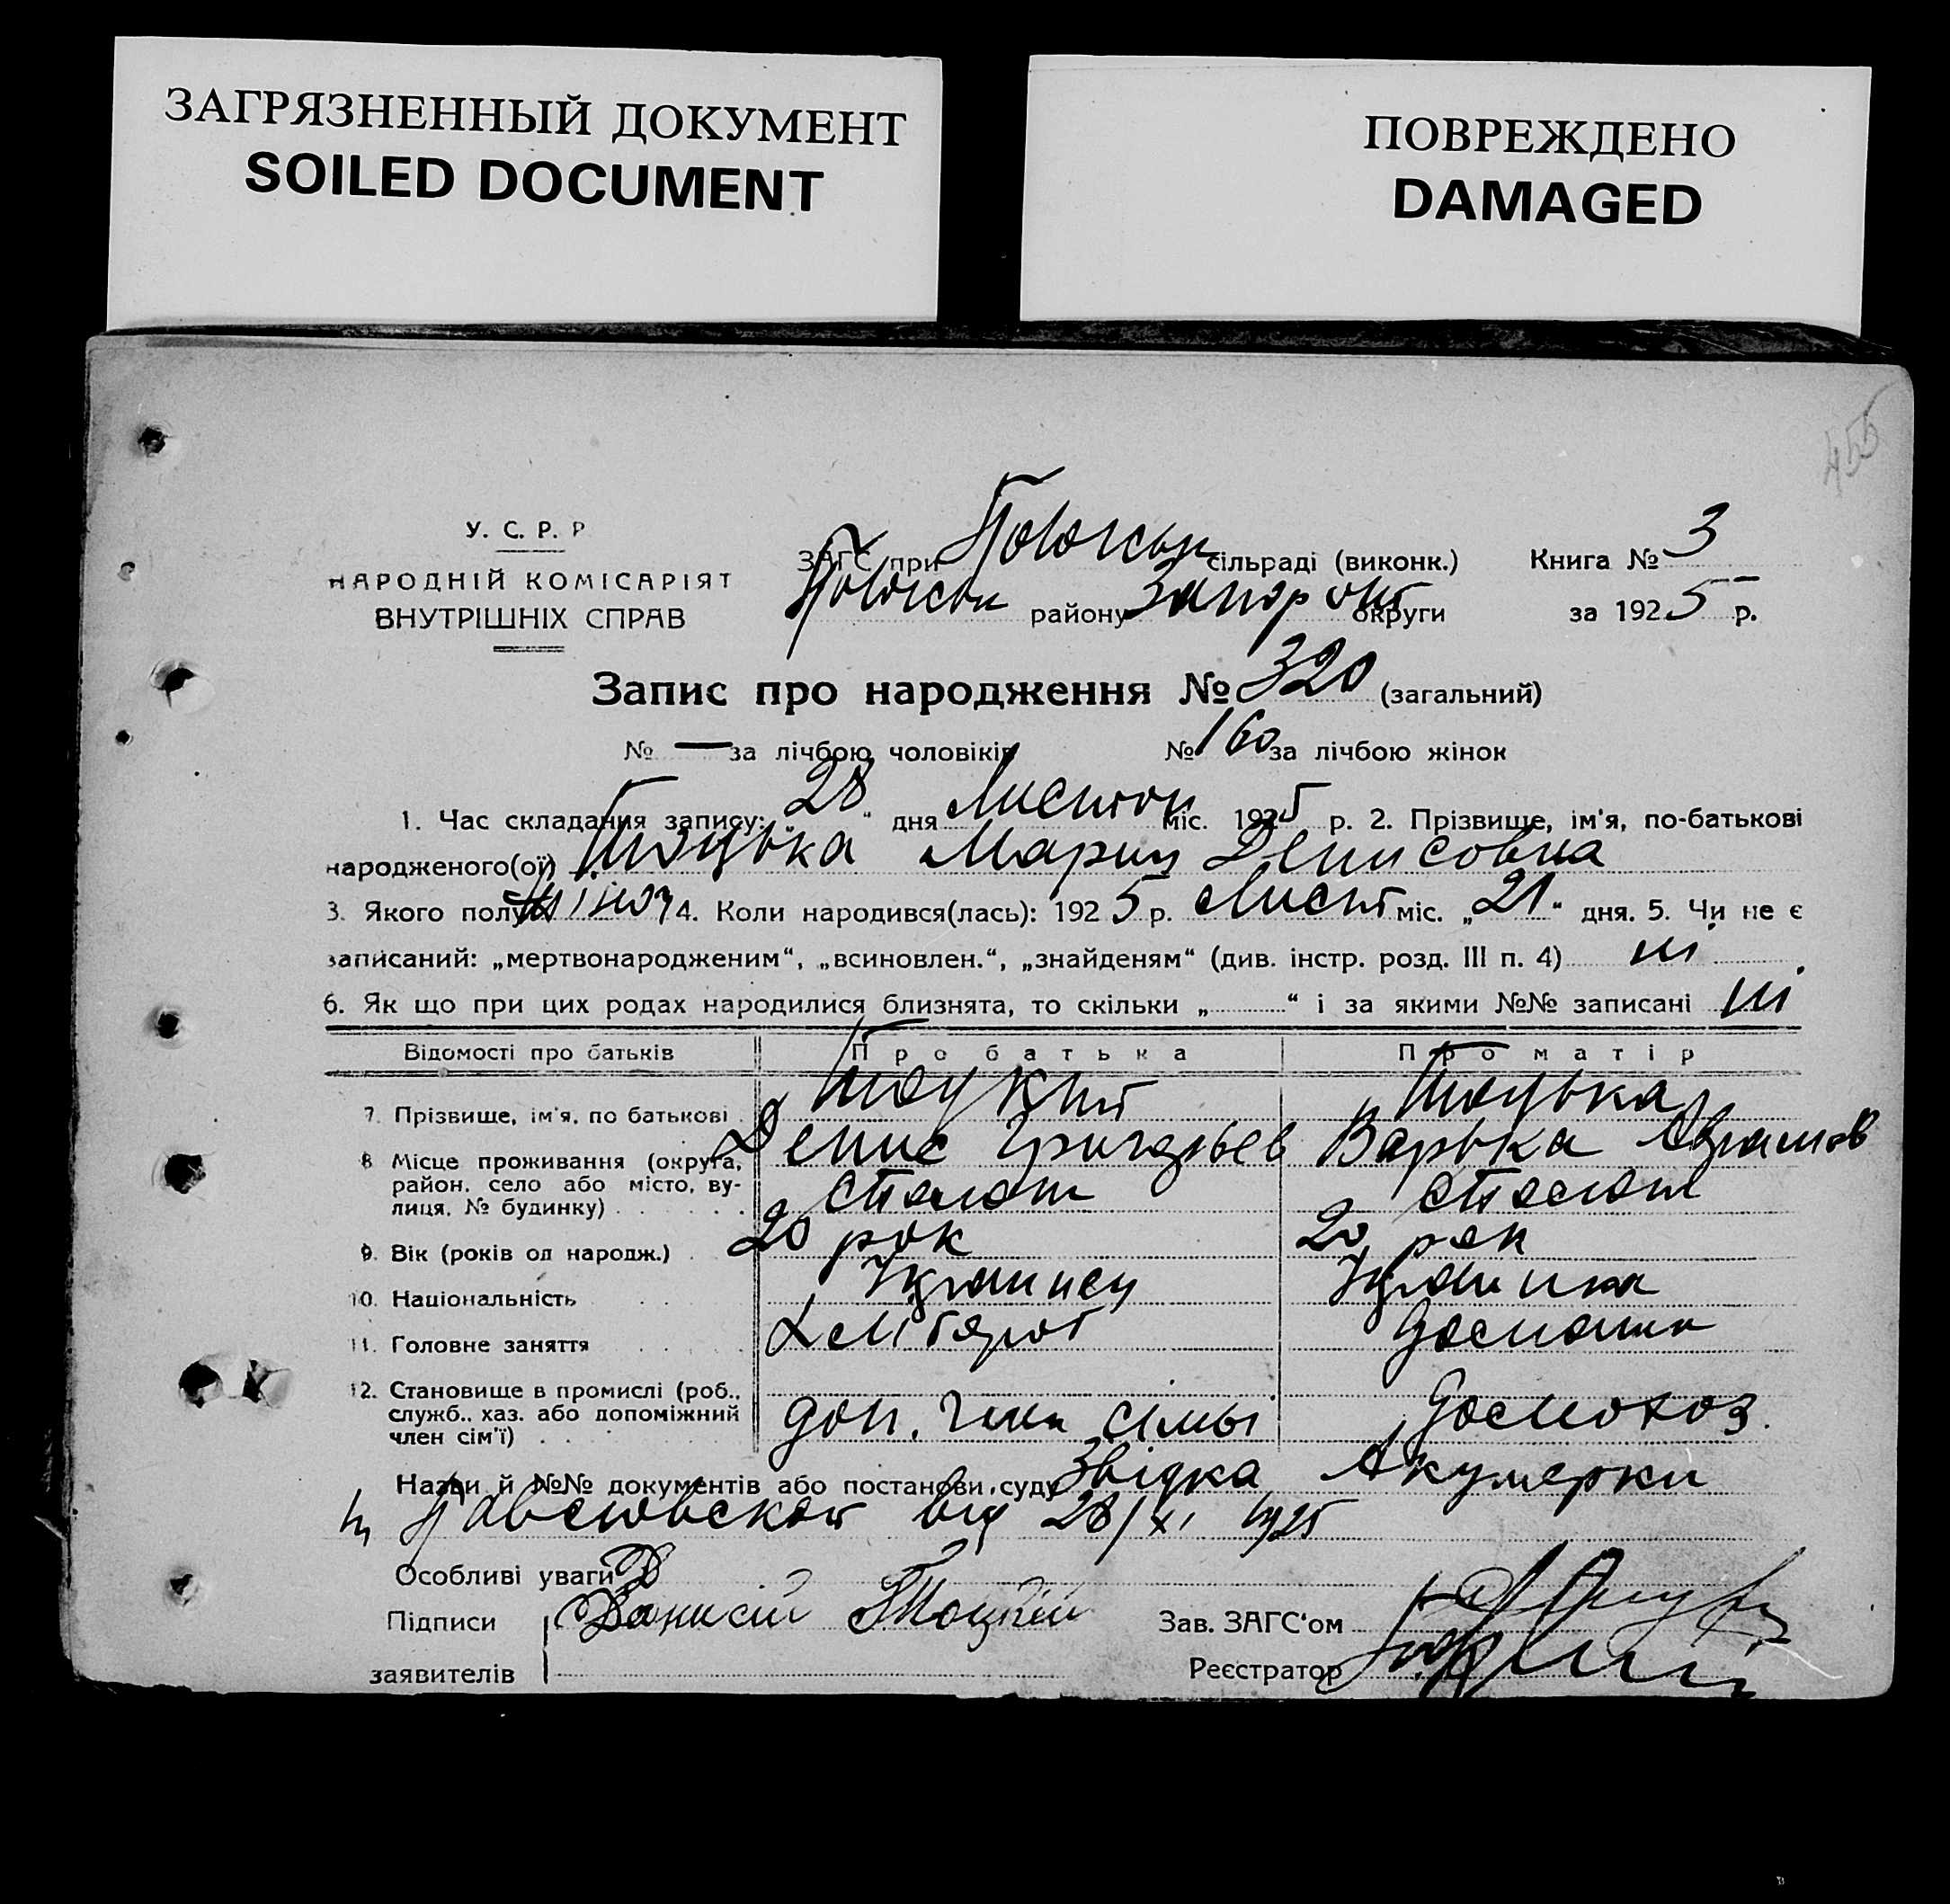 ЗАГРЯЗНЕННЫЙ ДОКУМЕНТ
SOILED DOCUMENT
ПОВРЕЖДЕНО
DAMAGED
455
У. С. Р. Р
НАРОДНІЙ КОМІСАРІЯТ
ВНУТРІШНІХ СПРАВ
ЗАГС при сільраді (виконк.) Книга № 3
району Запор округи за 1925 р.
Запис про народження № 320 (загальний)
№ — за лічбою чоловіків № 160 за лічбою жінок
1. Час складання запису: „28“ дня Листоп міс. 1925 р. 2. Прізвище, ім'я, по-батькові
народженого(ої) Тоцька Мария Денисовна
3. Якого полу жіноч 4. Коли народився(лась): 1925 р. Лист міс. „21“ дня. 5. Чи не є
записаний: „мертвонародженим“, „всиновлен.“, „знайденям“ (див. інстр. розд. III п. 4) ні
6. Як що при цих родах народилися близнята, то скільки „ “ і за якими №№ записані ні
Відомості про батьків Про батька Про матір
7. Прізвище, ім'я, по батькові Тоцкий Денис Григорьев Тоцька Варька Абрамов
8 Місце проживання (округа, район, село або місто, вулиця, № будинку)
9. Вік (років од народж.) 20 рок 20 рок
10. Національність Українец Українка
11. Головне заняття Хлібороб
12. Становище в промислі (роб., служб., хаз. або допоміжний член сім'ї) доп. член сімьі
Назви й №№ документів або постанови суду Звідка Акушерки
від 28/XI 1925
Особливі уваги
Підписи Тоцкий Зав. ЗАГС'ом
заявителів Реєстратор